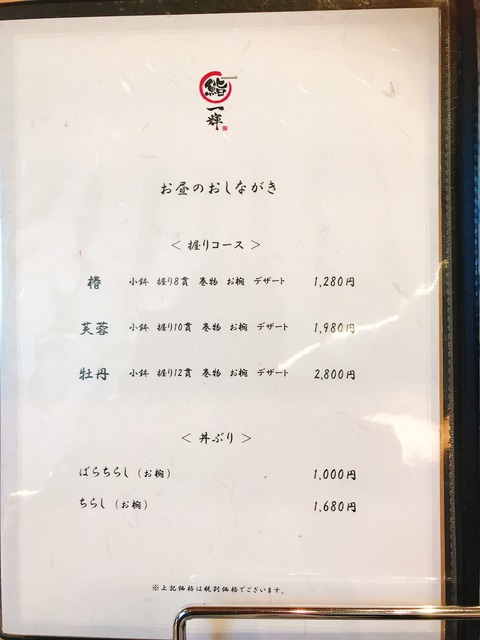 鮨
一輝
お昼のおしながき
＜ 握りコース ＞
椿 小鉢 握り8貫 巻物 お椀 デザート 1,280円
芙蓉 小鉢 握り10貫 巻物 お椀 デザート 1,980円
牡丹 小鉢 握り12貫 巻物 お椀 デザート 2,800円
＜ 丼ぶり ＞
ばらちらし（お椀） 1,000円
ちらし（お椀） 1,680円
※上記価格は税別価格でございます。